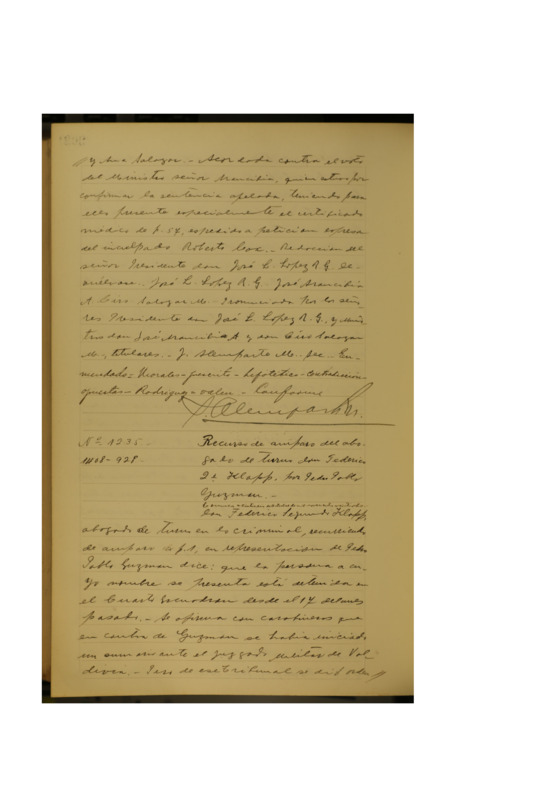 y Ana Salazar. - Acordada contra el voto
del Ministro señor Arancibia, quien estuvo por
confirmar la sentencia apelada, teniendo para
ello presente especialmente el certificado
médico de f. 54, expedido a petición expresa
del inculpado Roberto Cox. - Redacción del
señor Presidente don José L. Lopez R. G. De-
vuélvase. José L. Lopez R. G. José Arancibia
A. Ciro Salazar M. - Pronunciada por los seño-
res Presidente don José L. Lopez R. G. y Minis-
tros don José Arancibia A. y don Ciro Salazar
M., titulares. - J. Alemparte M. Sec. - En-
mendado = Morales - presente - hipotético -
opuesta - Rodriguez - valen - Conforme
Nº 1235. -
1408 - 928
Recurso de amparo del abo-
gado de turno don Federico
2º Klapp, por Pedro Pablo
Guzman. -
Don Federico Segundo Klapp,
abogado de turno en lo criminal, recurriendo
de amparo a f. 1, en representación de Pedro
Pablo Guzman dice: que la persona a cu-
yo nombre se presenta está detenida en
el Cuarto Escuadron desde el 17 del mes
pasado. - Se oferma con carabineros que
en contra de Guzman se habia iniciado
un sumario ante el Juzgado Militar de Val-
divia. - Juez de ese tribunal se dió orden